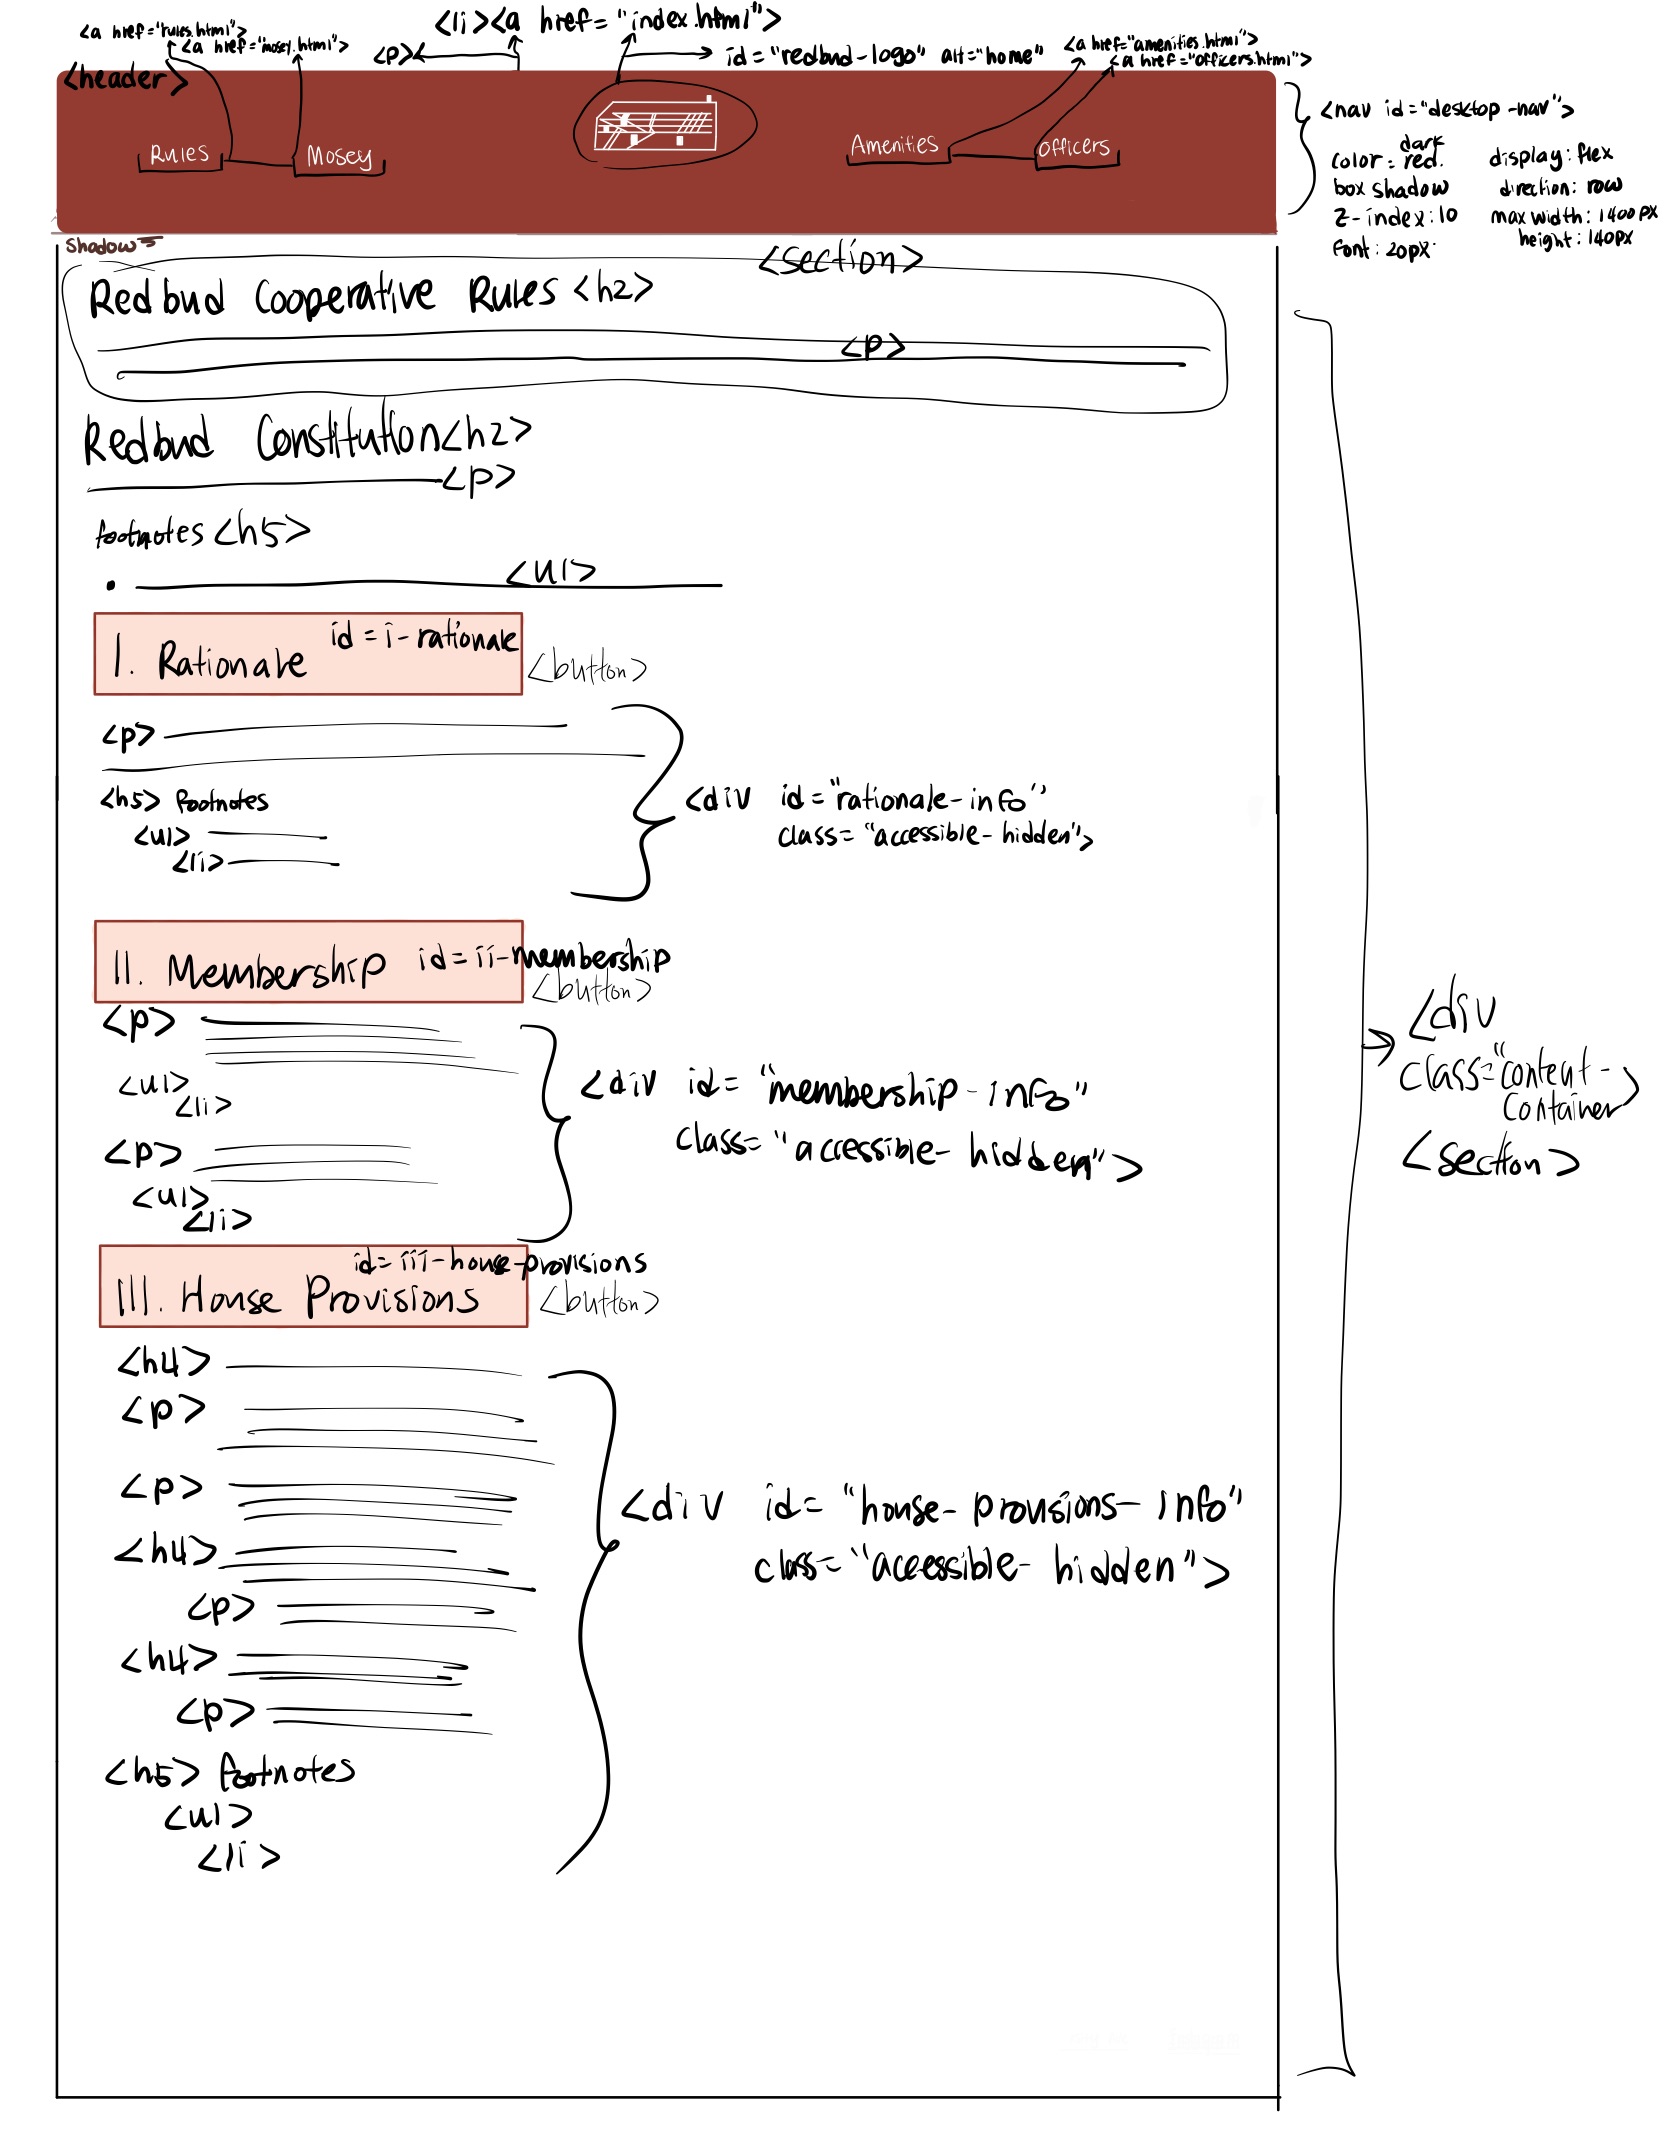 <a href="rules.html">
<a href="mosey.html">
<li><a href="index.html">
<p>
id="redbud-logo" alt="home"
<a href="amenities.html">
<a href="officers.html">
<header>
Rules
Mosey
Amenities
Officers
<nav id="desktop-nav">
color: dark red.
display: flex
box shadow
direction: row
z-index: 10
max width: 1400px
font: 20px
height: 140px
Shadow
<section>
Redbud Cooperative Rules <h2>
<p>
Redbud Constitution <h2>
<p>
footnotes <h5>
<ul>
I. Rationale id = i-rationale
<button>
<p>
<h5> footnotes
<ul>
<li>
<div id="rationale-info"
class="accessible-hidden">
II. Membership id = ii-membership
<button>
<p>
<ul>
<li>
<p>
<ul>
<li>
<div id="membership-info"
class="accessible-hidden">
<div
class="content-
container>
<section>
id= iii-house-provisions
III. House Provisions
<button>
<h4>
<p>
<p>
<h4>
<p>
<h4>
<p>
<h5> footnotes
<ul>
<li>
<div id="house-provisions-info"
class="accessible-hidden">